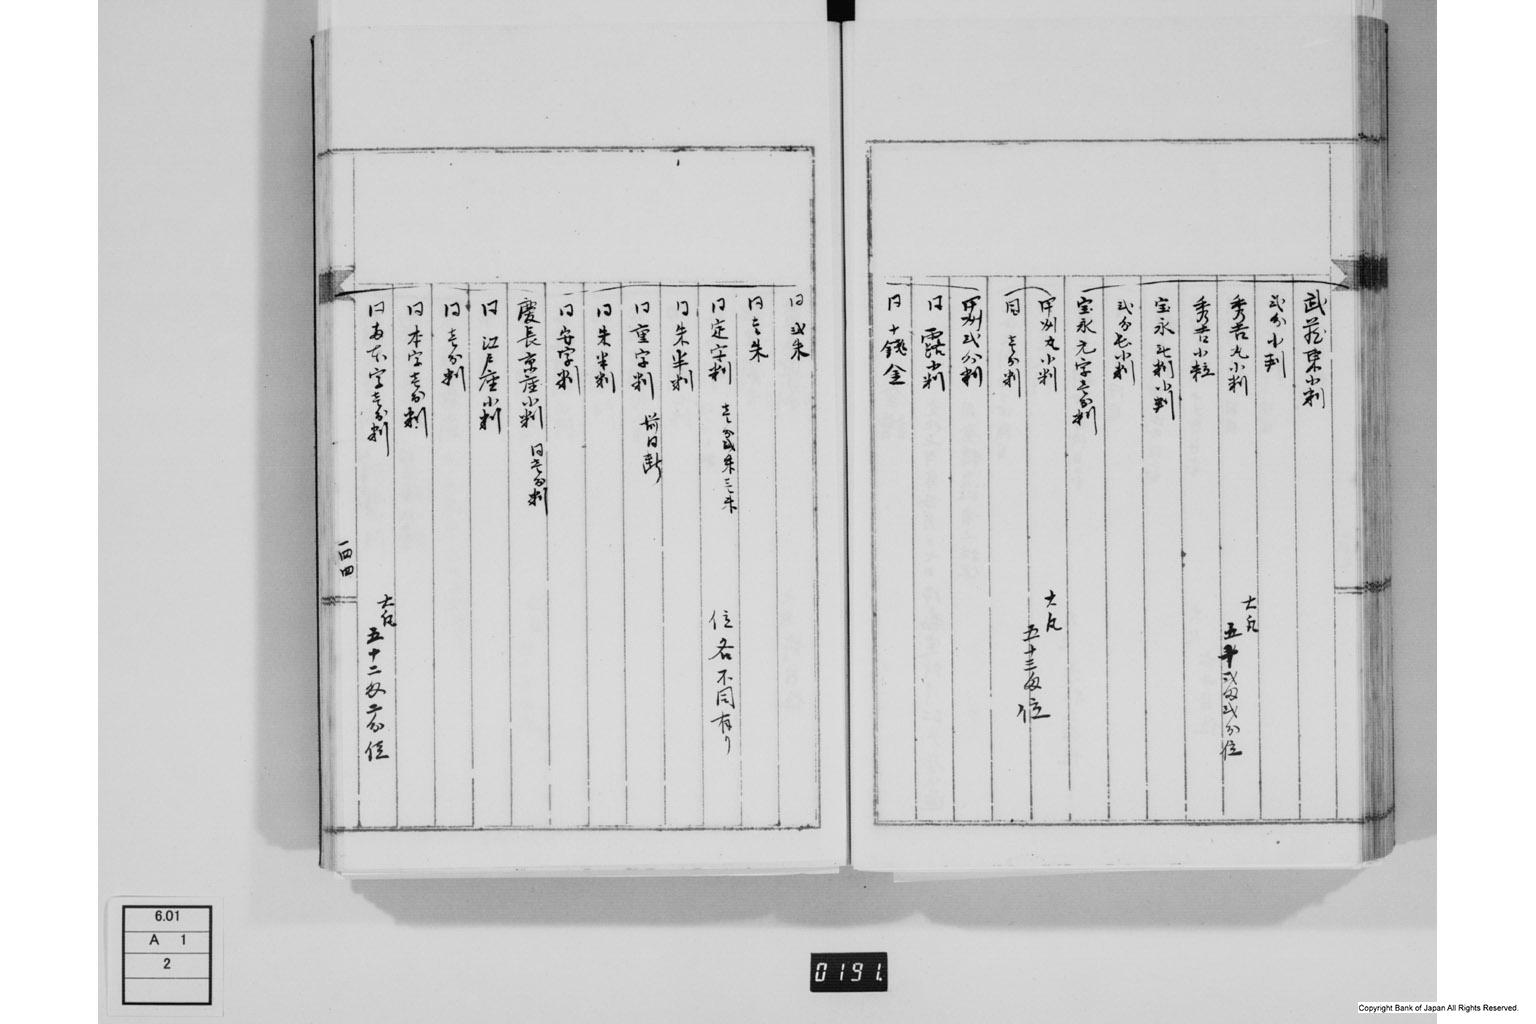 武蔵墨小判
弐分小判
秀吉丸小判
秀吉小粒
大凡
五十弐匁弐分位
宝永乾小判
弐分乾小判
宝永元字壱分判
甲州丸小判
同 壱分判
大凡
五十三匁位
甲州弐分判
同 露小判
同 十錢金
同 弐朱
同壱朱
同定字判 壱分弐朱三朱
位各不同有り
同朱半判
同重字判 前同断
同朱半判
同安字判
慶長京座小判 同壱分判
同 江戸座小判
同壱分判
同本字壱分判
同両本字壱分判
大凡
五十二匁二分位
一四四
6.01
A 1
2
0191.
Copyright Bank of Japan All Rights Reserved.